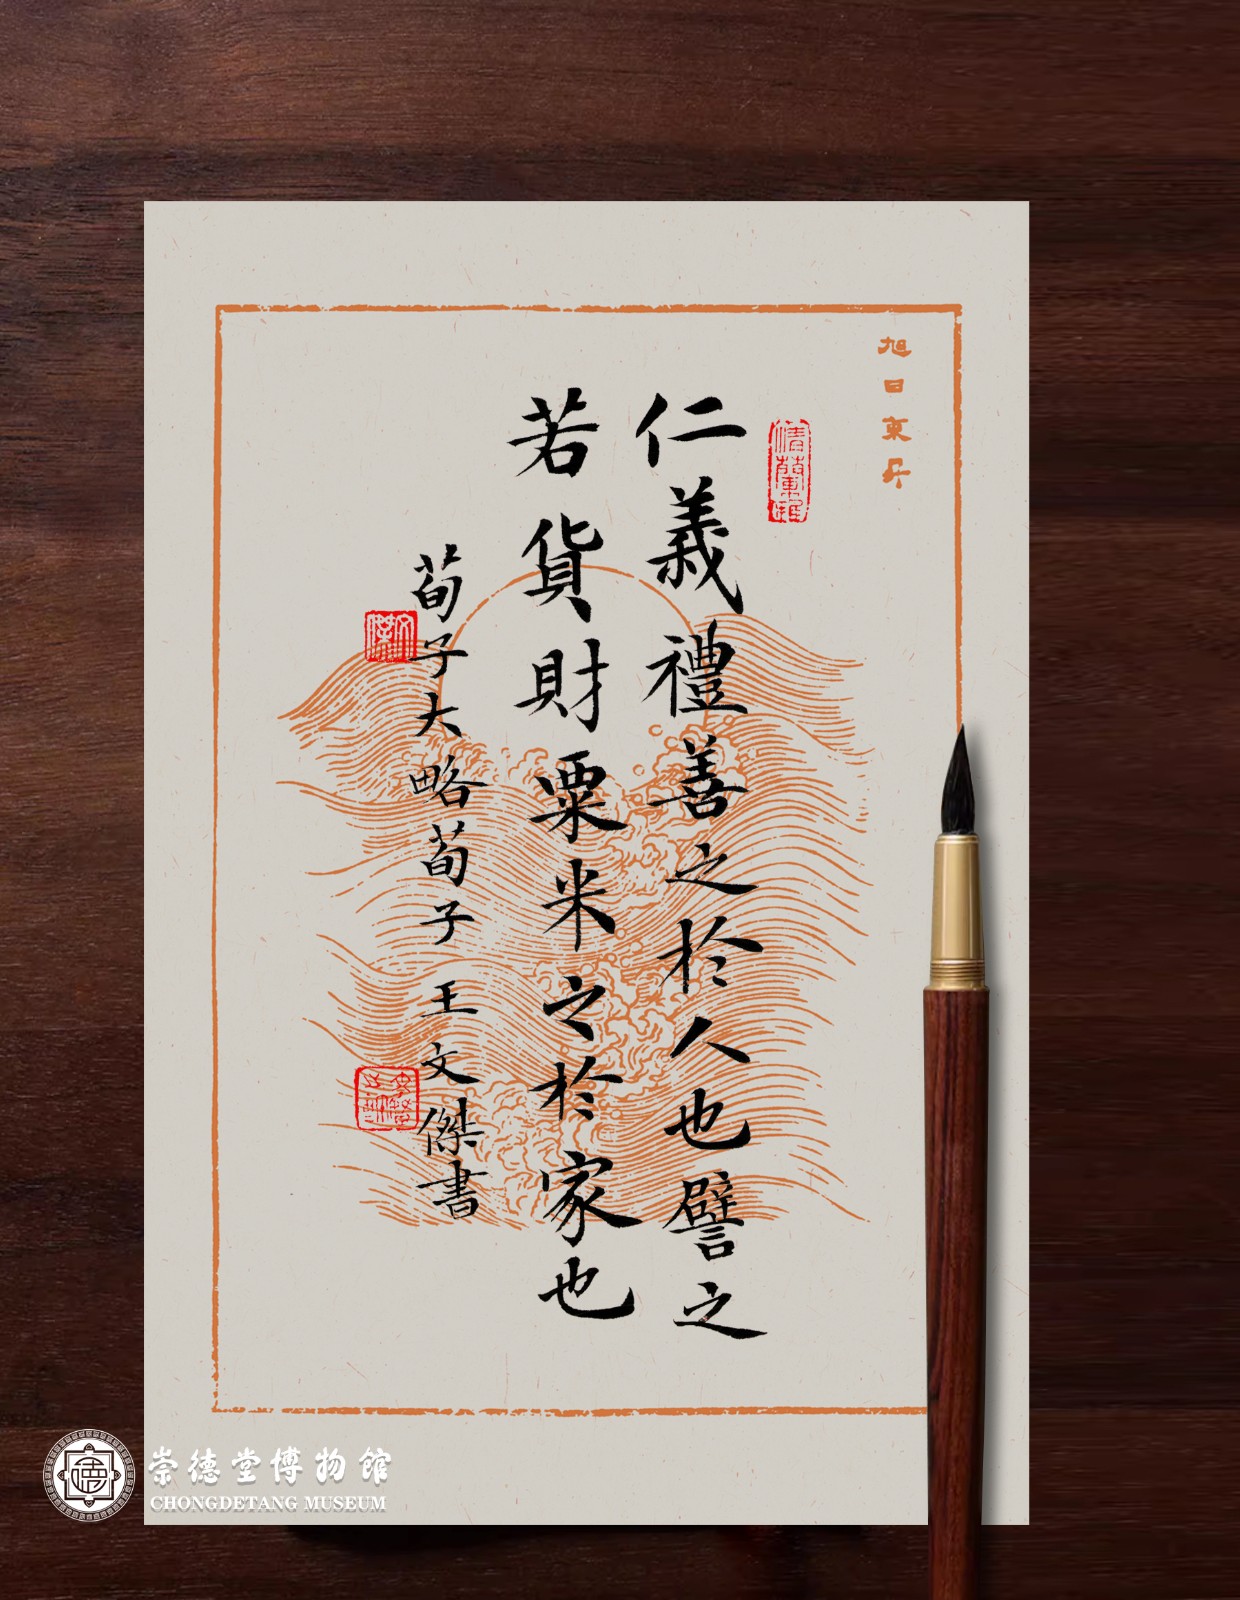 旭日東升
仁義禮善之於人也譬之
若貨財粟米之於家也
荀子大略荀子 王文傑書
崇德堂博物館
CHONGDETANG MUSEUM